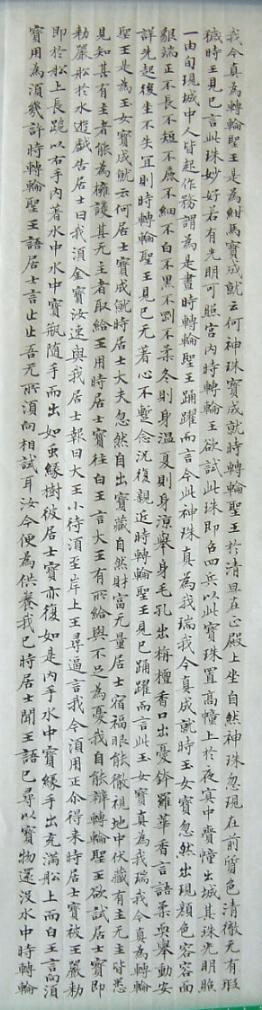 我今真為轉輪聖王是為紺馬寶成就云何神珠寶成就時轉輪聖王於清旦在正殿上坐自然神珠忽現在前質色清徹无有瑕
穢時王見已言此珠妙好若有光明可照宮內時轉輪王欲試此珠即召四兵以此寶珠置高幢上於夜冥中賫幢出城其珠光明照
一由旬現城中人皆起作務謂為是晝時轉輪聖王踊躍而言今此神珠真為我瑞我今真成就時玉女寶忽然出現顏色容容面
貌端正不長不短不麁不細不白不黑不剛不柔冬則身溫夏則身涼舉身毛孔出栴檀香口出憂鉢羅華香言語柔耎舉動安
詳先起後坐不失宜則時轉輪聖王見已无著心不蹔念況復親近時轉輪聖王見已踊躍而言此玉女寶真為我瑞我今真為轉輪
聖王是為玉女寶成就云何居士寶成就時居士大夫忽然自出寶藏自然財富无量居士宿福眼能徹視地中伏藏有主无主皆悉
見知其有主者能為擁護其无主者取給王用時居士寶往白王言大王有所給與不足為憂我自能辦轉輪聖王欲試居士寶即
勑嚴船於水遊戲告居士曰我湏金寶汝速與我居士報曰大王小待湏至岸上王尋逼言我今湏用正尒得来時居士寶被王嚴勑
即於船上長跪以右手內著水中水中寶瓶隨手而出如虫緣樹彼居士寶亦復如是內手水中寶緣手出充滿船上而白王言向湏
寶用為湏幾許時轉輪聖王語居士言止止吾无所湏向相試耳汝今便為供養我已時居士聞王語已尋以寶物還沒水中時轉輪